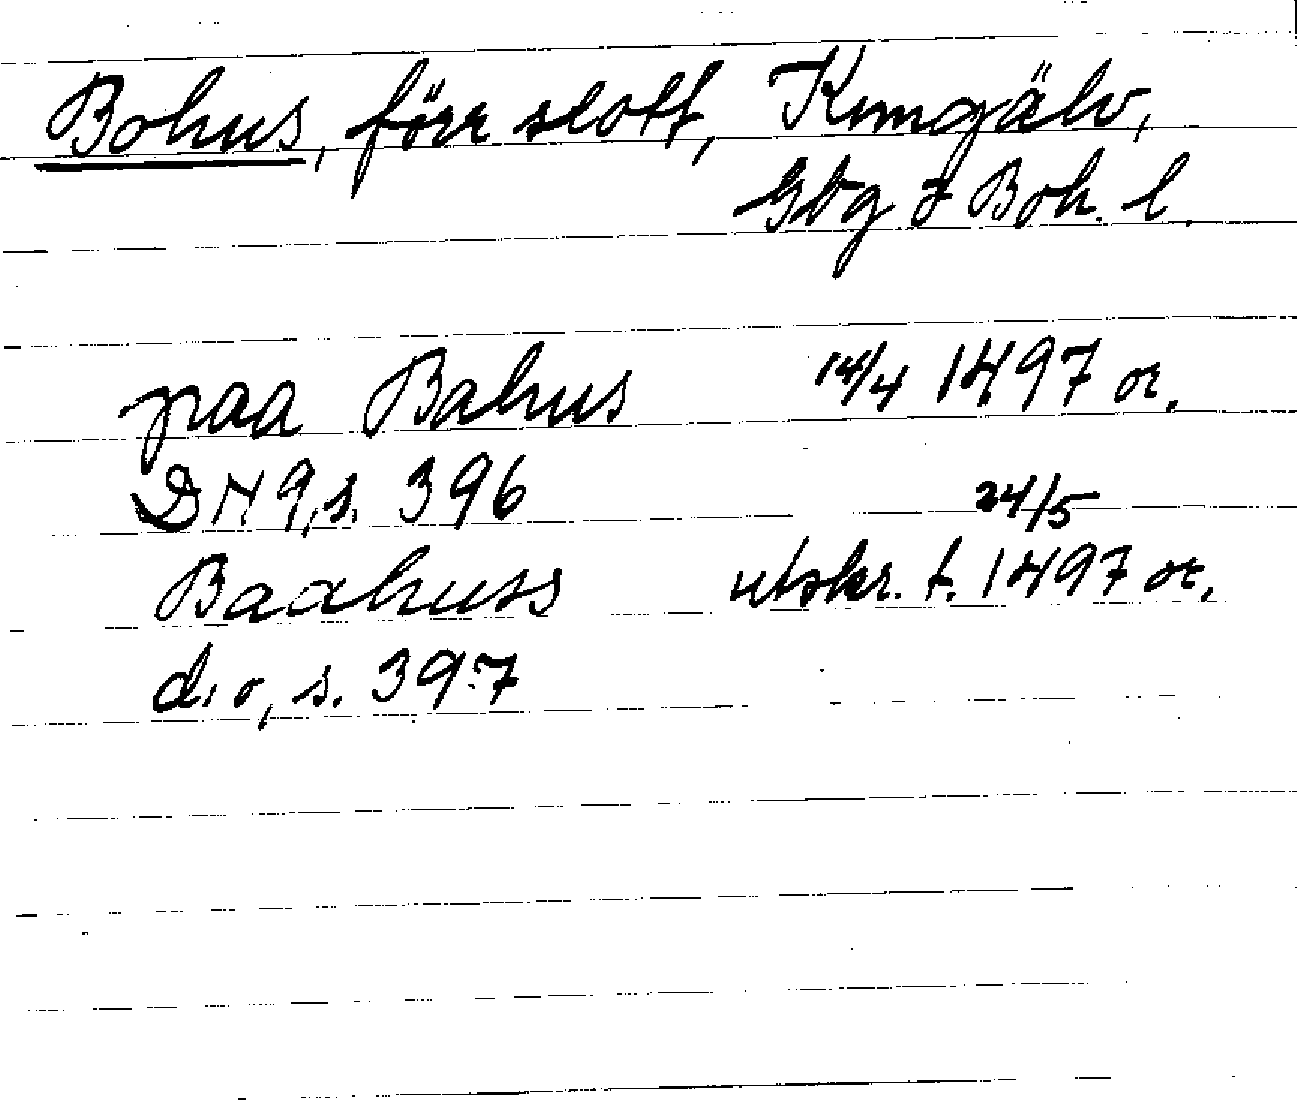 Bohus, förr slott, Kungälv,
Gbg o Boh. l.
paa Bahus 14/4 1497 or.
DN 9, s. 396 24/5
Baahuss utskr. f. 1497 or.
d:o, s. 397